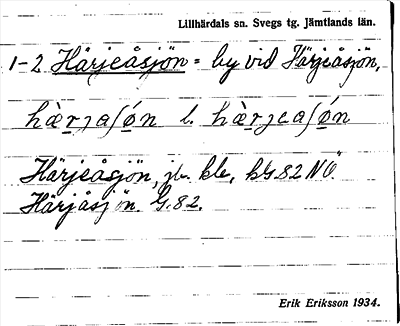 Lillhärdals sn. Svegs tg. Jämtlands län.
1-2 Härjeåsjön = by vid Härjeåsjön,
hæ̀rjaʃón l. hæ̀rjeaʃón
Härjeåsjön, kG.82 NÖ.
Härjåsjön. G.82.
Erik Eriksson 1934.